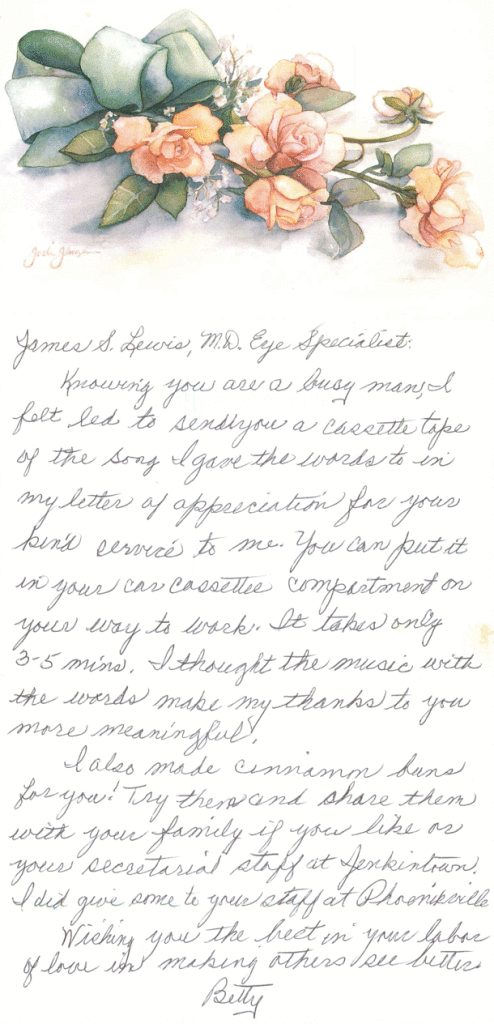 James S. Lewis, M.D. Eye Specialist:
Knowing you are a busy man, I
felt led to send you a cassette tape
of the song I gave the words to in
my letter of appreciation for your
kind service to me. You can put it
in your car cassette compartment on
your way to work. It takes only
3-5 mins. I thought the music with
the words make my thanks to you
more meaningful.
I also made cinnamon buns
for you! Try them and share them
with your family if you like or
your secretarial staff at Jenkintown.
I did give some to your staff at Phoenixville
Wishing you the best in your labor
of love in making others see better.
Betty